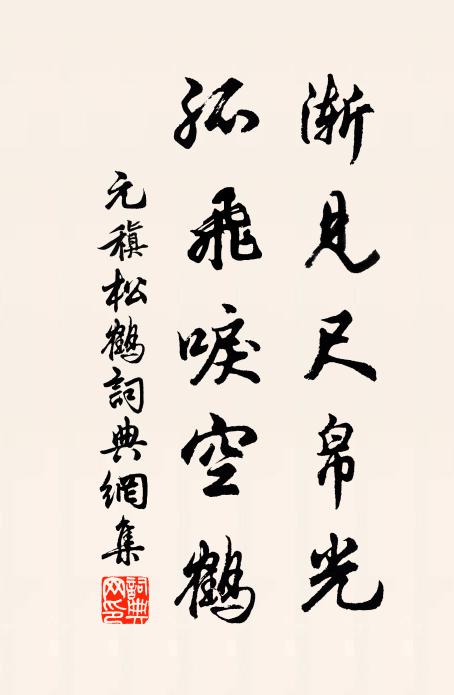 漸見尺帛光
孤飛唳空鶴
元稹松鶴詞典網集
詞典網印